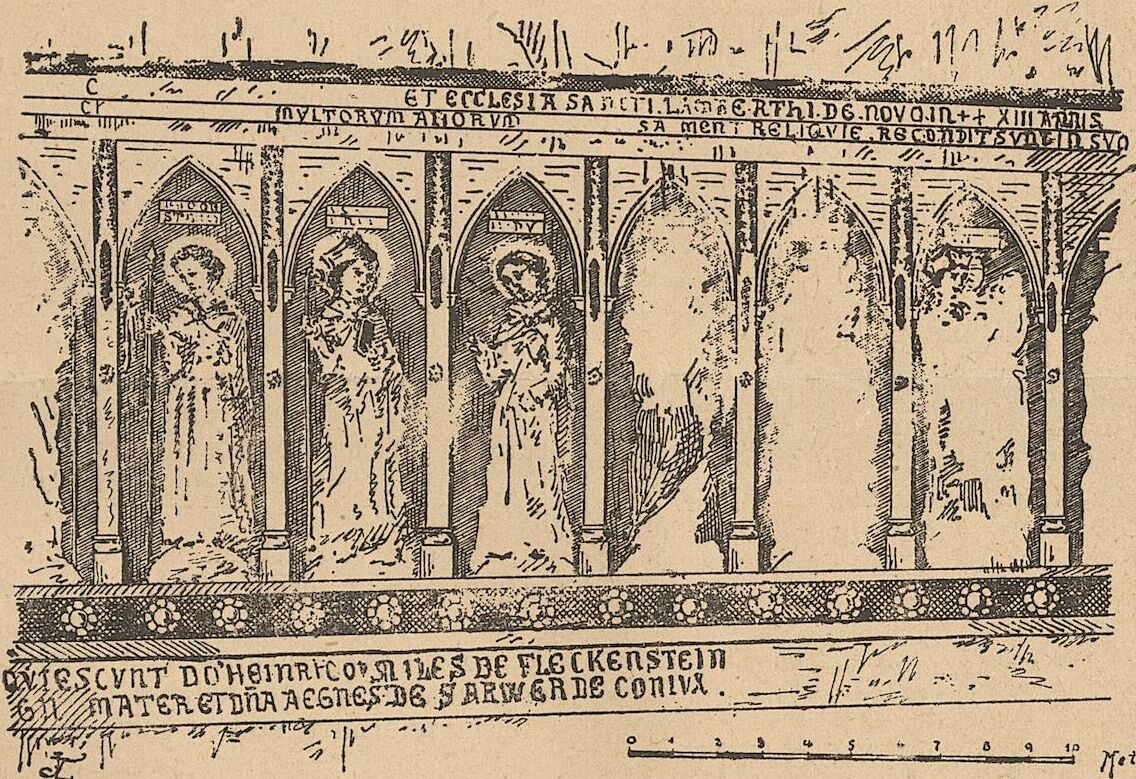 C
ET ECCLESIA SANCTI. LAMBERTHI. DE. NOVO. IN ++ XIII ANNIS
MVLTORVM AMORVM
SA MENT RELIQVIE. RECONDIT SVNT IN SVO
QVIESCVNT DO'HEINRICO MILES DE FLECKENSTEIN
MATER ET DÑA AEGNES DE SARWERDE CONIVX.
0 1 2 3 4 5 6 7 8 9 10 Met